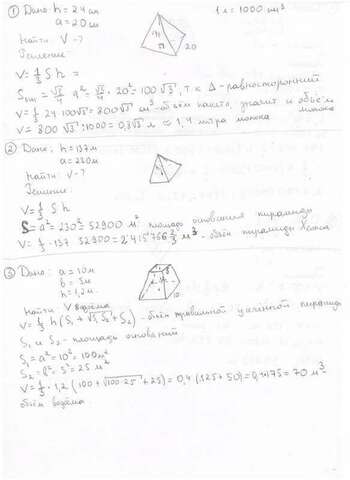 ① Дано: h = 24 см
a = 20 см
1 л = 1000 см³
Найти V - ?
20
Решение
V = 1/3 S h =
S = √3/4 a² = √3/4 · 20² = 100√3, т.к. Δ - равносторонний
V = 1/3 24·100√3 = 800√3 см³ - объём пакета, значит и объём молока
V = 800√3 : 1000 = 0,8√3 л ≈ 1,4 литра молока
② Дано: h = 137 м
a = 230 м
Найти: V - ?
Решение:
V = 1/3 S h
S = a² = 230² = 52900 м² площадь основания пирамиды
V = 1/3 · 137 · 52900 = 2415766 2/3 м³ - объём пирамиды Хеопса
③ Дано: a = 10 м
b = 5 м
h = 1,2 м.
10
Найти V водоёма
V = 1/3 h (S₁ + √S₁S₂ + S₂) - объём правильной усечённой пирамиды
S₁ и S₂ - площадь оснований
S₁ = a² = 10² = 100 м²
S₂ = b² = 5² = 25 м²
V = 1/3 · 1,2 (100 + √100·25 + 25) = 0,4 (125 + 50) = 0,4·175 = 70 м³
объём водоёма.